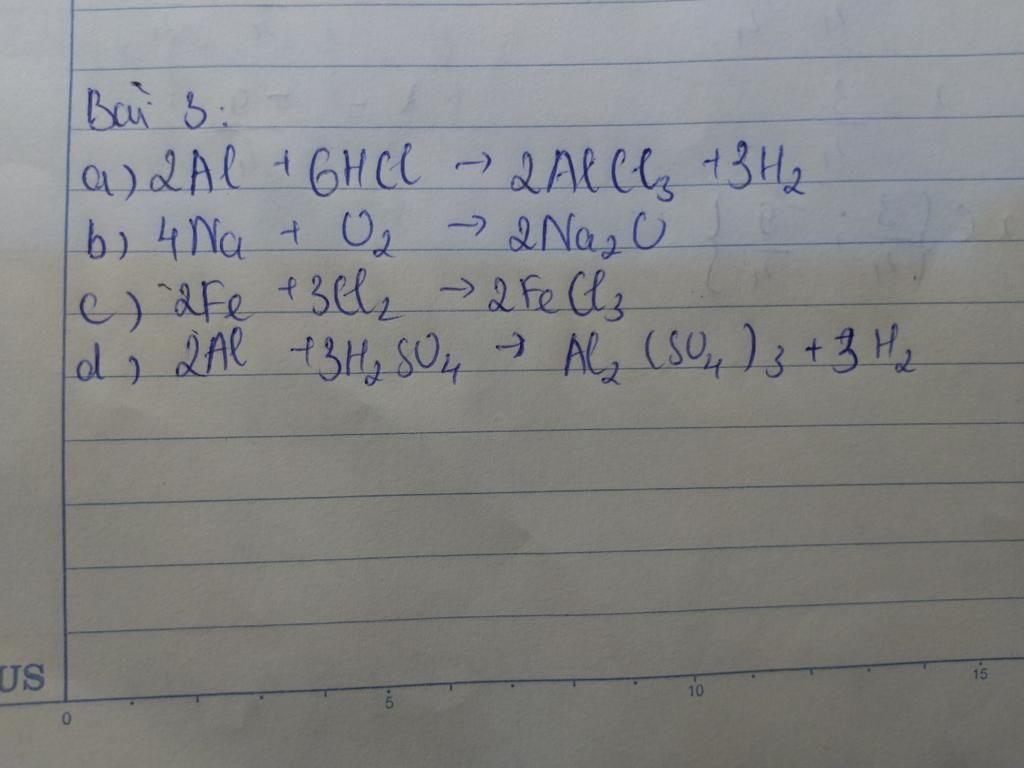 Bài 3:
a) 2Al + 6HCl → 2AlCl₃ + 3H₂
b) 4Na + O₂ → 2Na₂O
c) 2Fe + 3Cl₂ → 2FeCl₃
d) 2Al + 3H₂SO₄ → Al₂(SO₄)₃ + 3H₂
US
0 5 10 15